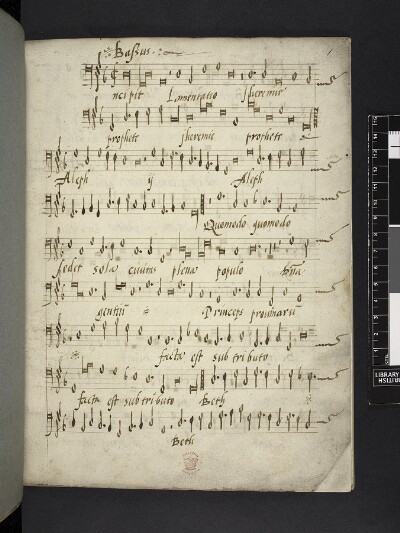 Bassus.
1
ncipit Lamentatio Jheremie
prophete Jheremie prophete
Aleph ij Aleph
Quomodo quomodo
sedet sola civitas plena populo
gentiũ Princeps
facta est sub tributo
facta est sub tributo Beth
Beth
LIBRARY